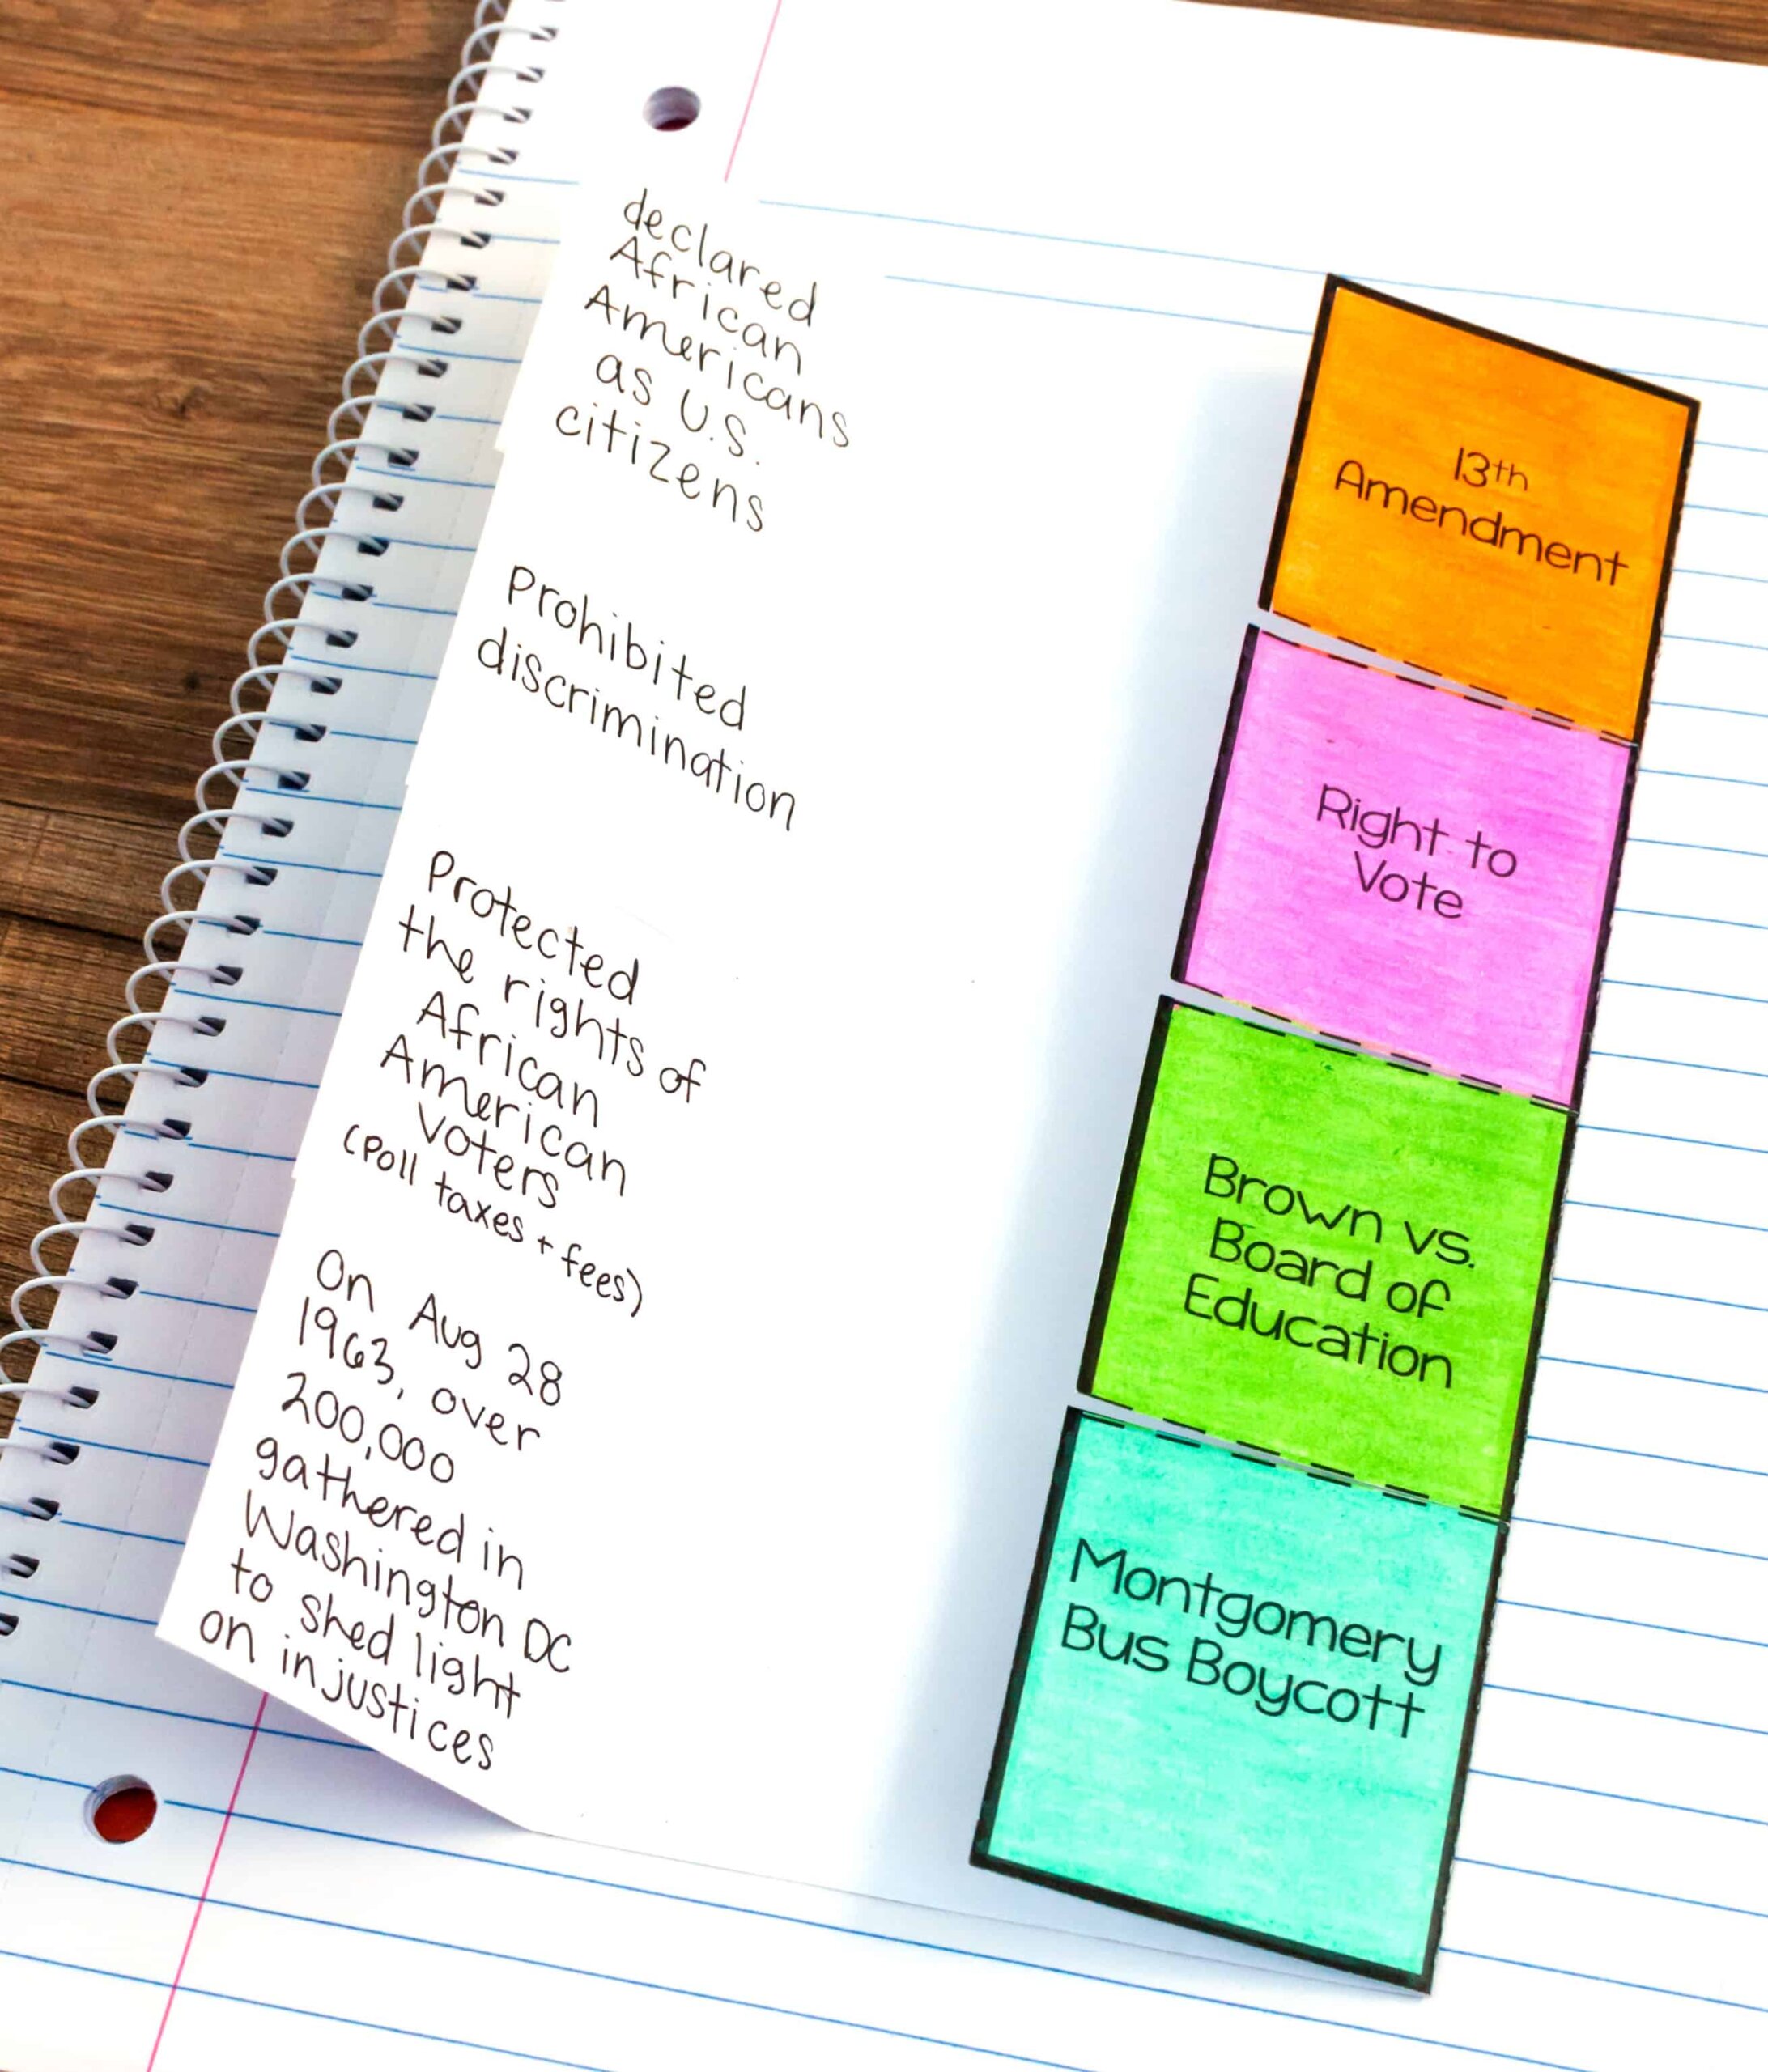 declared
African
Americans
as U.S.
citizens
Prohibited
discrimination
Protected
the rights of
African
American
Voters
(Poll taxes + fees)
On Aug 28
1963, over
200,000
gathered in
Washington DC
to shed light
on injustices
13th
Amendment
Right to
Vote
Brown vs.
Board of
Education
Montgomery
Bus Boycott